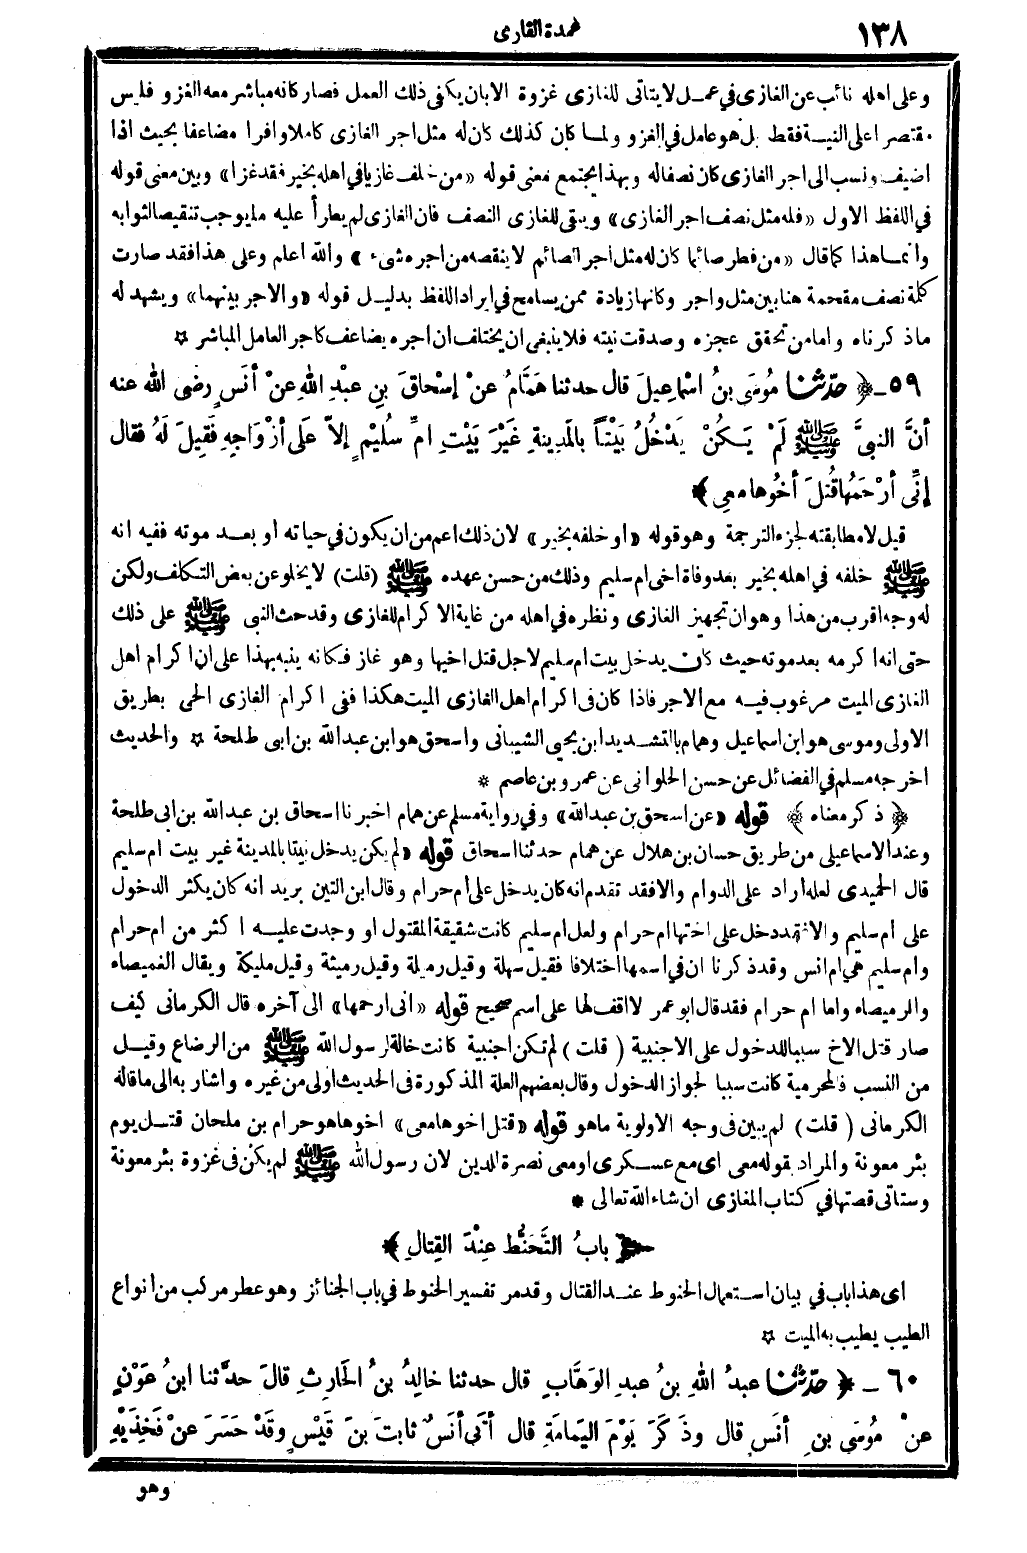 ١٣٨
عمدة القارى
وعلى اهله نائب عن الغازى في عمل لا يتاتى للغازى غزوة الا بان يكفى ذلك العمل فصار كانه مباشر معه الغزو فليس
مقتصرا على النية فقط بل هو عامل في الغزو ولما كان كذلك كان له مثل اجر الغازى كاملا وافرا مضاعفا بحيث اذا
اضيف ونسب الى اجر الغازى كان نصفا له وبهذا يجتمع معنى قوله «من خلف غازيا في اهله بخير فقد غزا» وبين معنى قوله
في اللفظ الاول «فله مثل نصف اجر الغازى» ويبقى للغازى النصف فان الغازى لم يطرأ عليه ما يوجب تنقيصا لثوابه
وانما هذا كما قال «من فطر صائما كان له مثل اجر الصائم لا ينقصه من اجره شىء» والله اعلم وعلى هذا فقد صارت
كلمة نصف مقحمة هنا بين مثل واجر وكانها زيادة ممن يسامح في ايراد اللفظ بدليل قوله «والاجر بينهما» ويشهد له
ماذكرناه وامامن تحقق عجزه وصدقت نيته فلا ينبغي ان يختلف ان اجره يضاعف كاجر العامل المباشر ✩
٥٩ـ ﴿ حدّثنا مُوسَى بنُ اسْماعِيلَ قال حدثنا هَمَّامٌ عنْ إسْحاقَ بنِ عبْدِ اللهِ عنْ أنَسٍ رضى الله عنه
أنَّ النبىَّ ﷺ لَمْ يَكُنْ يَدْخُلُ بَيْتاً بالمَدِينةِ غَيْرَ بَيْتِ امِّ سُلَيْمٍ إلاَّ عَلَى أزْوَاجِهِ فَقِيلَ لَهُ فقال
إنِّى أرْحَمُها قُتِلَ أخُوها معِى ﴾
قيل لا مطابقته لجزء الترجمة وهو قوله «او خلفه بخير» لان ذلك اعم من ان يكون في حياته او بعد موته ففيه انه
ﷺ خلفه في اهله بخير بعد وفاة اخى ام سليم وذلك من حسن عهده ﷺ (قلت) لا يخلو عن بعض التكلف ولكن
له وجه اقرب من هذا وهو ان تجهيز الغازى ونظره في اهله من غاية الاكرام للغازى وقد حث النبى ﷺ على ذلك
حتى انه اكرمه بعد موته حيث كان يدخل بيت ام سليم لاجل قتل اخيها وهو غاز فكانه ينبه بهذا على ان اكرام اهل
الغازى الميت مرغوب فيه مع الاجر فاذا كان فى اكرام اهل الغازى الميت هكذا ففى اكرام الغازى الحى بطريق
الاولى وموسى هو ابن اسماعيل وهمام بالتشديد ابن يحيى الشيبانى واسحق هو ابن عبد الله بن ابى طلحة ✩ والحديث
اخرجه مسلم في الفضائل عن حسن الحلوانى عن عمرو بن عاصم *
﴿ ذكر معناه ﴾ قوله «عن اسحق بن عبد الله» وفي رواية مسلم عن همام اخبرنا اسحاق بن عبد الله بن ابى طلحة
وعند الاسماعيلى من طريق حسان بن هلال عن همام حدثنا اسحاق قوله «لم يكن يدخل بيتا بالمدينة غير بيت ام سليم
قال الحميدى لعله اراد على الدوام والا فقد تقدم انه كان يدخل على ام حرام وقال ابن التين يريد انه كان يكثر الدخول
على ام سليم والا فقد دخل على اختها ام حرام ولعل ام سليم كانت شقيقة المقتول او وجدت عليه اكثر من ام حرام
وام سليم هى ام انس وقد ذكرنا ان في اسمها اختلافا فقيل سهلة وقيل رميلة وقيل رميثة وقيل مليكة ويقال الغميصاء
والرميصاء واما ام حرام فقد قال ابو عمر لا اقف لها على اسم صحيح قوله «انى ارحمها» الى آخره قال الكرمانى كيف
صار قتل الاخ سببا للدخول على الاجنبية (قلت) لم تكن اجنبية كانت خالة لرسول الله ﷺ من الرضاع وقيل
من النسب فالمحرمية كانت سببا لجواز الدخول وقال بعضهم العلة المذكورة فى الحديث اولى من غيره واشار به الى ما قاله
الكرمانى (قلت) لم يبين فى وجه الاولوية ماهو قوله «قتل اخوها معى» اخوها هو حرام بن ملحان قتل يوم
بئر معونة والمراد بقوله معى اى مع عسكرى او معى نصرة للدين لان رسول الله ﷺ لم يكن فى غزوة بئر معونة
وستاتى قصتها في كتاب المغازى ان شاء الله تعالى *
﴿ بابُ التَّحَنُّطِ عِنْدَ القِتالِ ﴾
اى هذا باب في بيان استعمال الحنوط عند القتال وقد مر تفسير الحنوط في باب الجنائز وهو عطر مركب من انواع
الطيب يطيب به الميت ✩
٦٠ ـ ﴿ حدّثنا عبدُ اللهِ بنُ عبدِ الوَهَّابِ قال حدثنا خالِدُ بنُ الحَارِثِ قالَ حدَّثنا ابنُ عَوْنٍ
عنْ مُوسَى بنِ أنَسٍ قال وذَكَرَ يَوْمَ اليَمامَةِ قال أتَى أنَسٌ ثابتَ بنَ قَيْسٍ وقَدْ حَسَرَ عنْ فَخِذَيْهِ
وهو